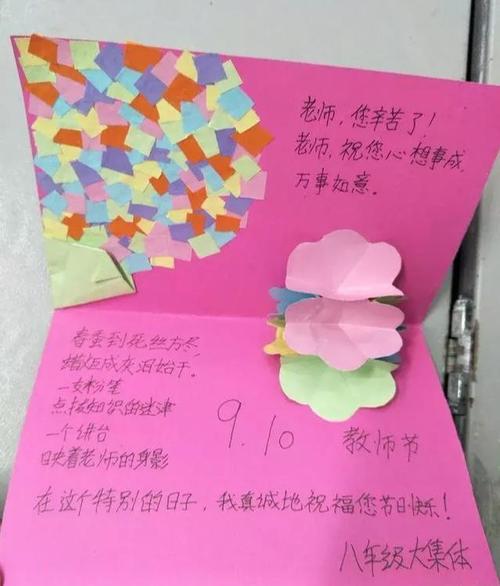 老师,您辛苦了!
老师,祝您心想事成,
万事如意。
春蚕到死丝方尽,
蜡炬成灰泪始干。
一支粉笔
点拨知识的迷津
一个讲台
映着老师的身影
9.10 教师节
在这个特别的日子,我真诚地祝福您节日快乐!
八年级大集体